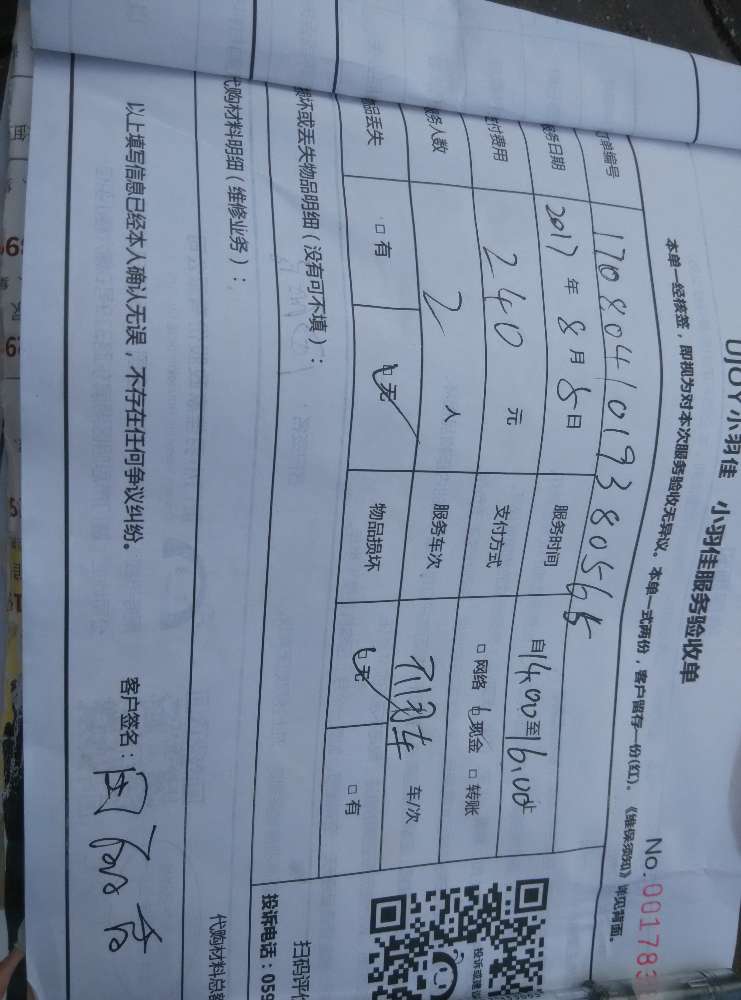 UJOY小羽佳 小羽佳服务验收单
No.001783
本单一经接签，即视为对本次服务验收无异议。本单一式两份，客户留存一份(红)。《维保须知》详见背面。
单编号 170804101938056
服务日期 2017年8月8日 服务时间 自14.00至16.00止
付费用 240元 支付方式 □网络 □现金 □转账
服务人数 2人 服务车次 不用车 车/次
品丢失 □有 □无 物品损坏 □无 □有
损坏或丢失物品明细（没有可不填）：
代购材料明细（维修业务）：
代购材料总额
扫码评价
投诉电话：059
投诉或建议
以上填写信息已经本人确认无误，不存在任何争议纠纷。
客户签名：